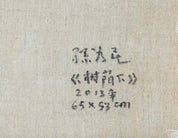 孙为民
《树荫下》
2013年
65×53cm